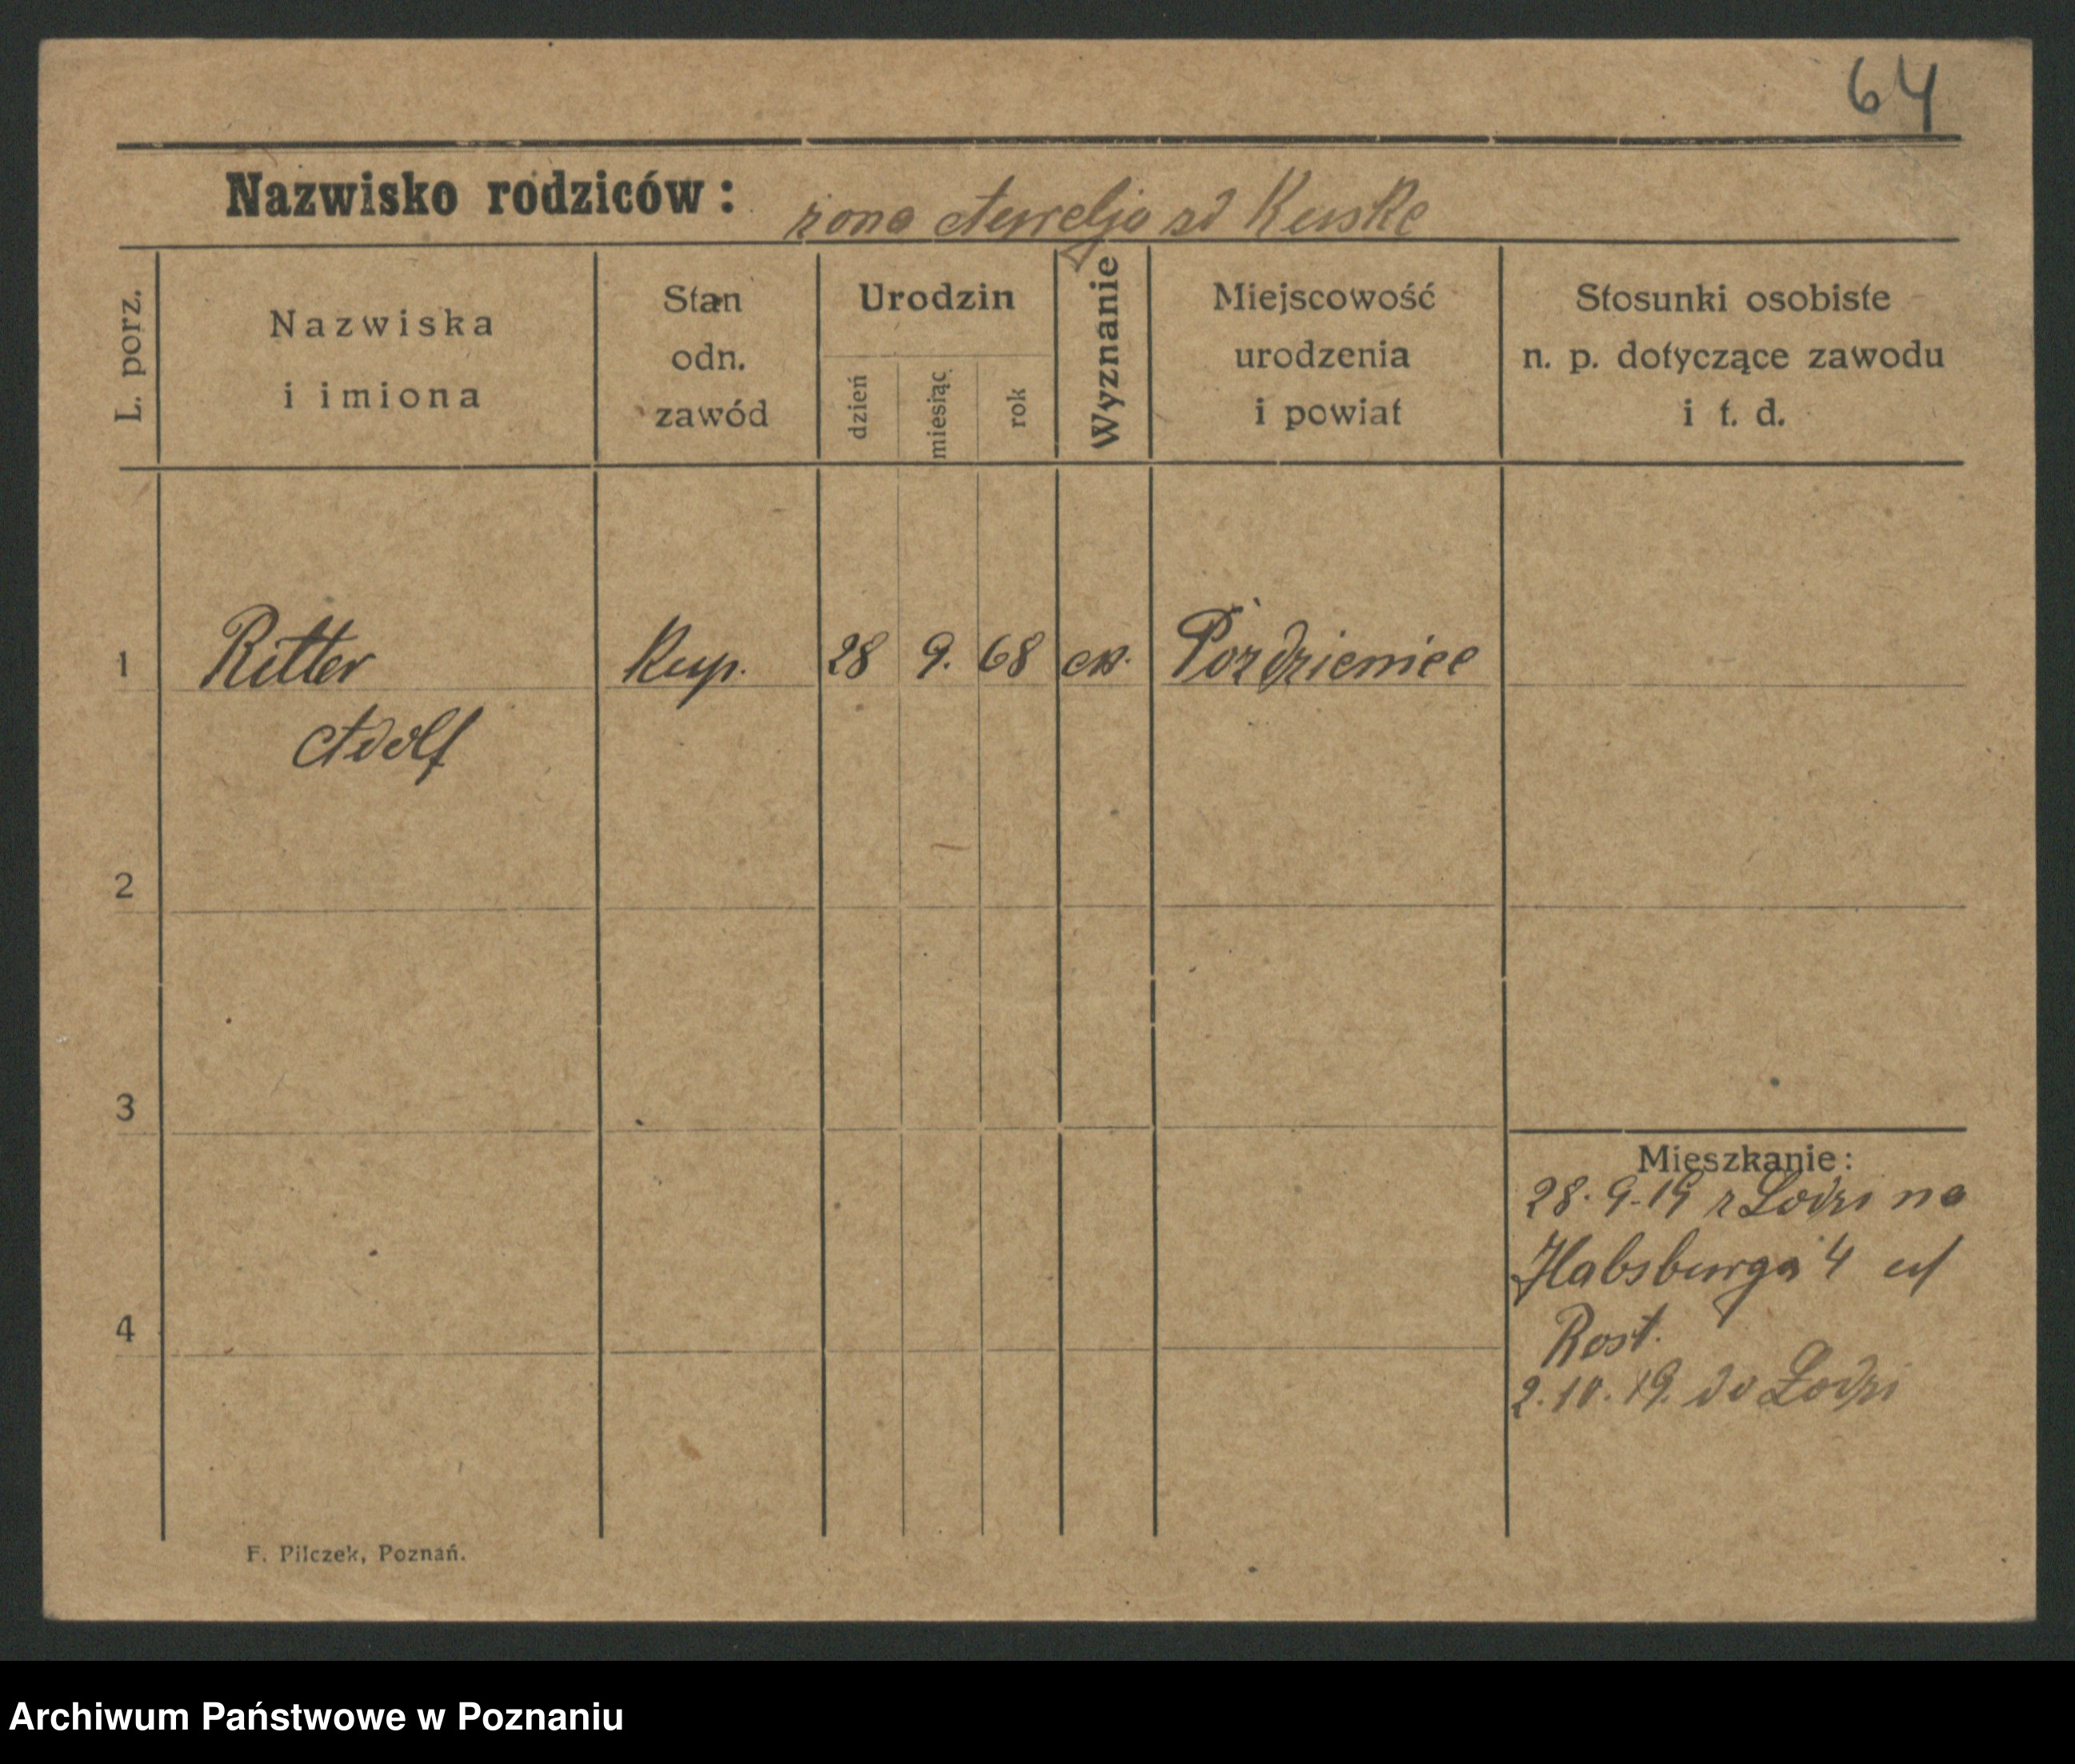 64
Nazwisko rodziców: żona Aurelja zd Kuske
L. porz.
Nazwiska
i imiona
Stan
odn.
zawód
Urodzin
dzień
miesiąc
rok
Wyznanie
Miejscowość
urodzenia
i powiat
Stosunki osobiste
n. p. dotyczące zawodu
i t. d.
1 Ritter Kup. 28 9. 68 ew. Poździeniec
Adolf
2
3
4
Mieszkanie:
28. 9. 19 z Lodzi na
Habsburga 4 u/
Rost.
2. 10. 19. do Łodzi
F. Pilczek, Poznań.
Archiwum Państwowe w Poznaniu